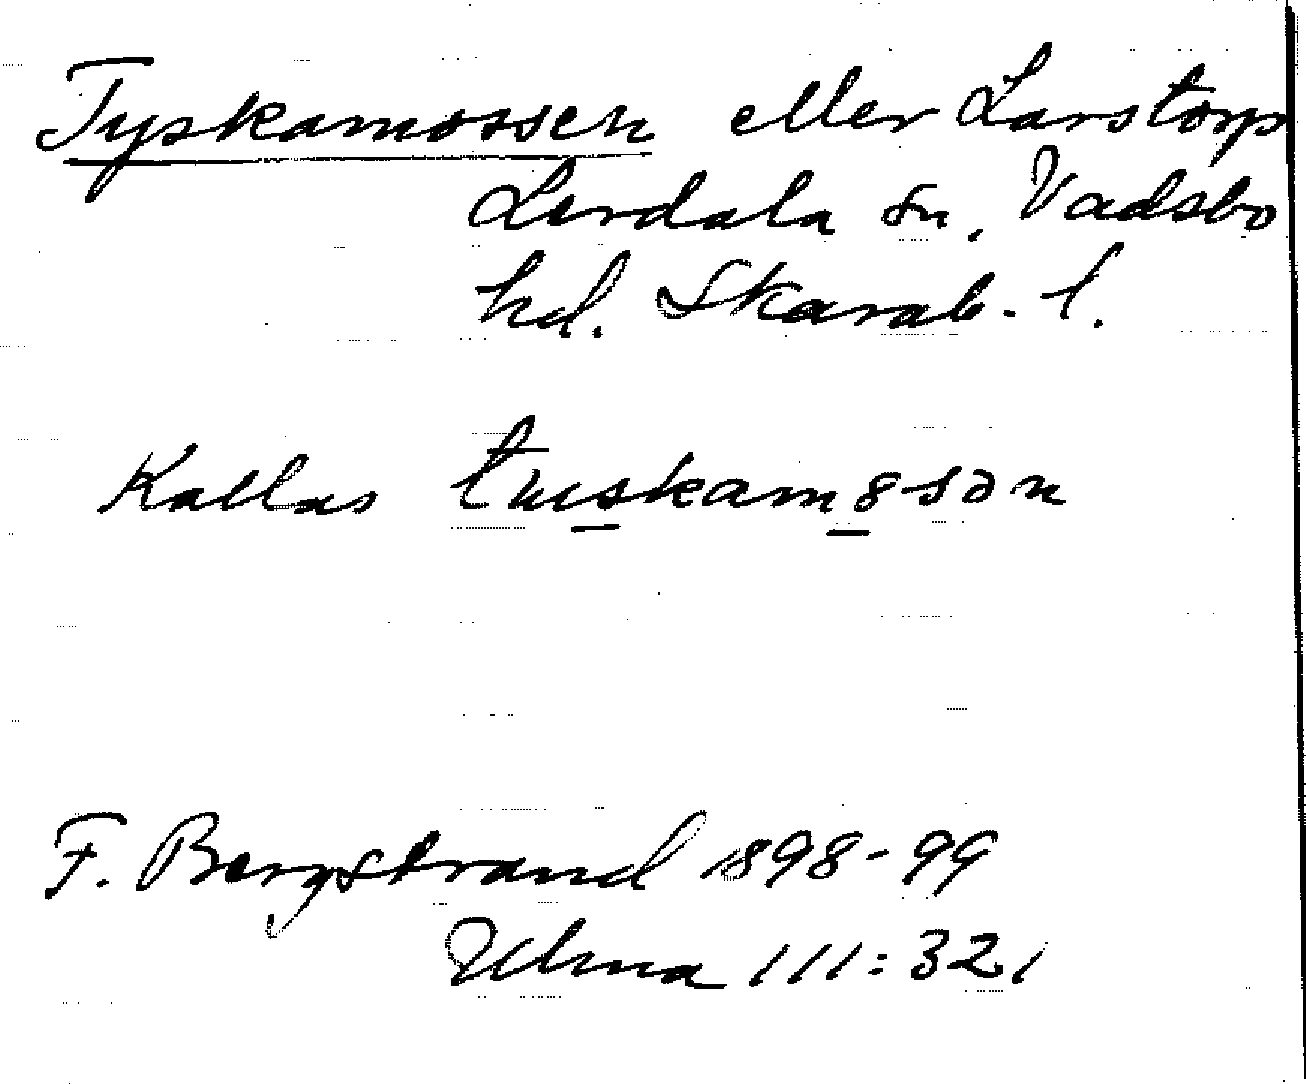 Tyskamossen eller Larstorp
Lerdala sn, Vadsbo
hd. Skarab. l.
Kallas tuskam8sən
F. Bergstrand 1898-99
Ulma 111:32,